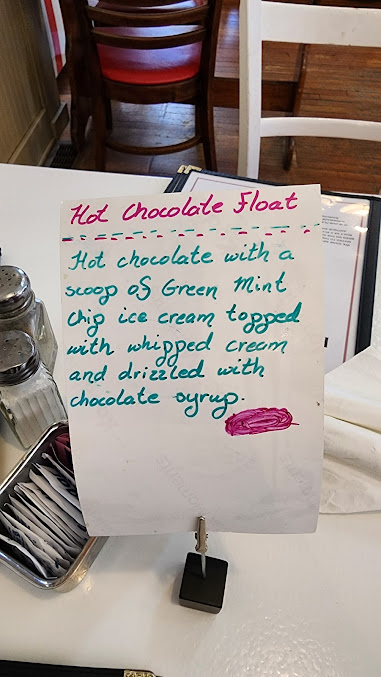 Hot Chocolate Float
Hot chocolate with a
scoop of Green Mint
chip ice cream topped
with whipped cream
and drizzled with
chocolate syrup.